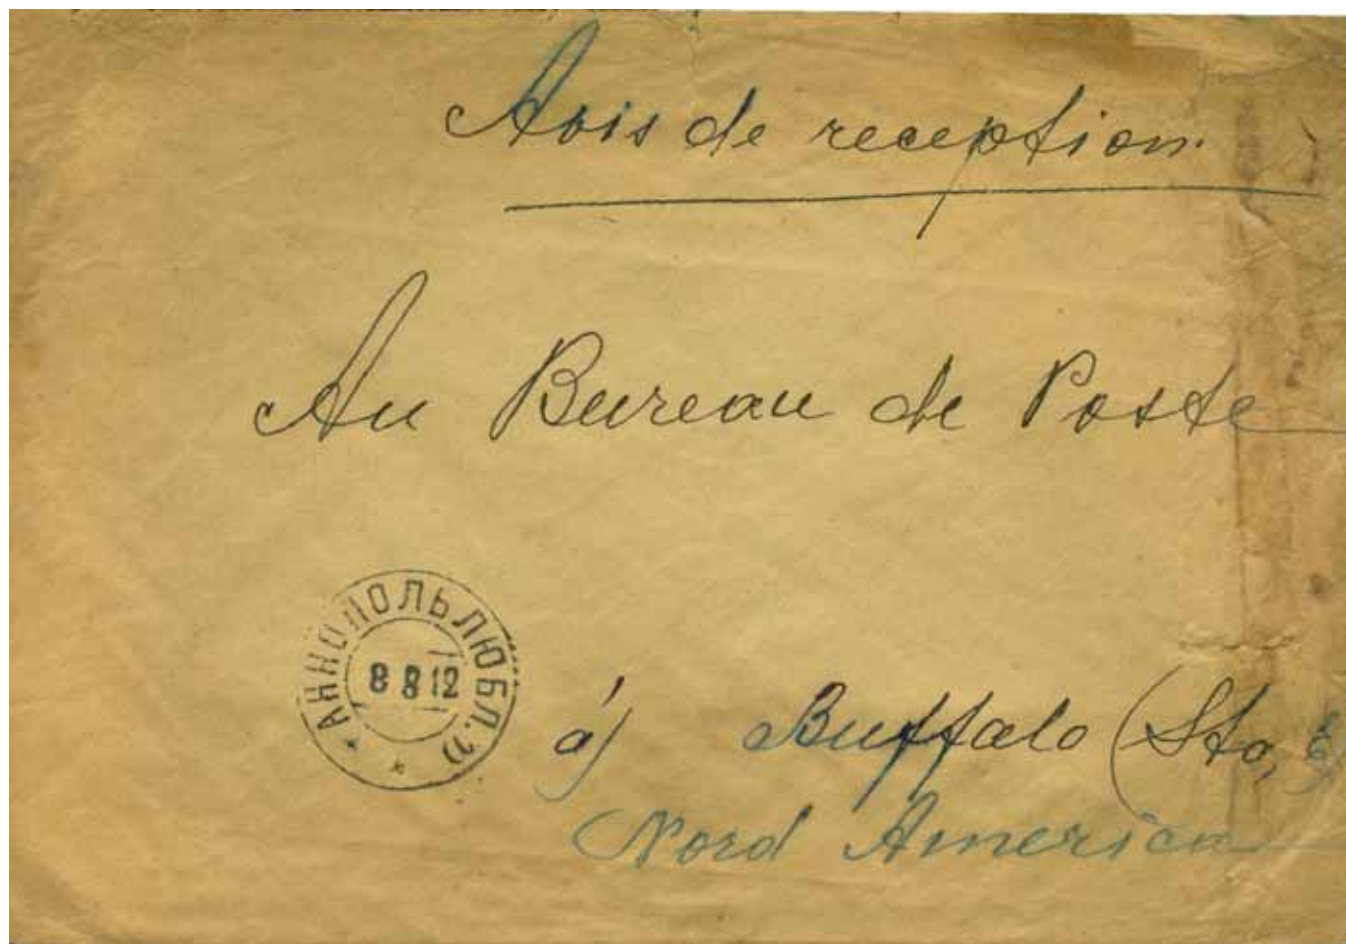 Avis de reception.
Au Bureau de Poste
АННОПОЛЬ ЛЮБЛ. Г.
8 8 12
à) Buffalo (Sta, E)
Nord America